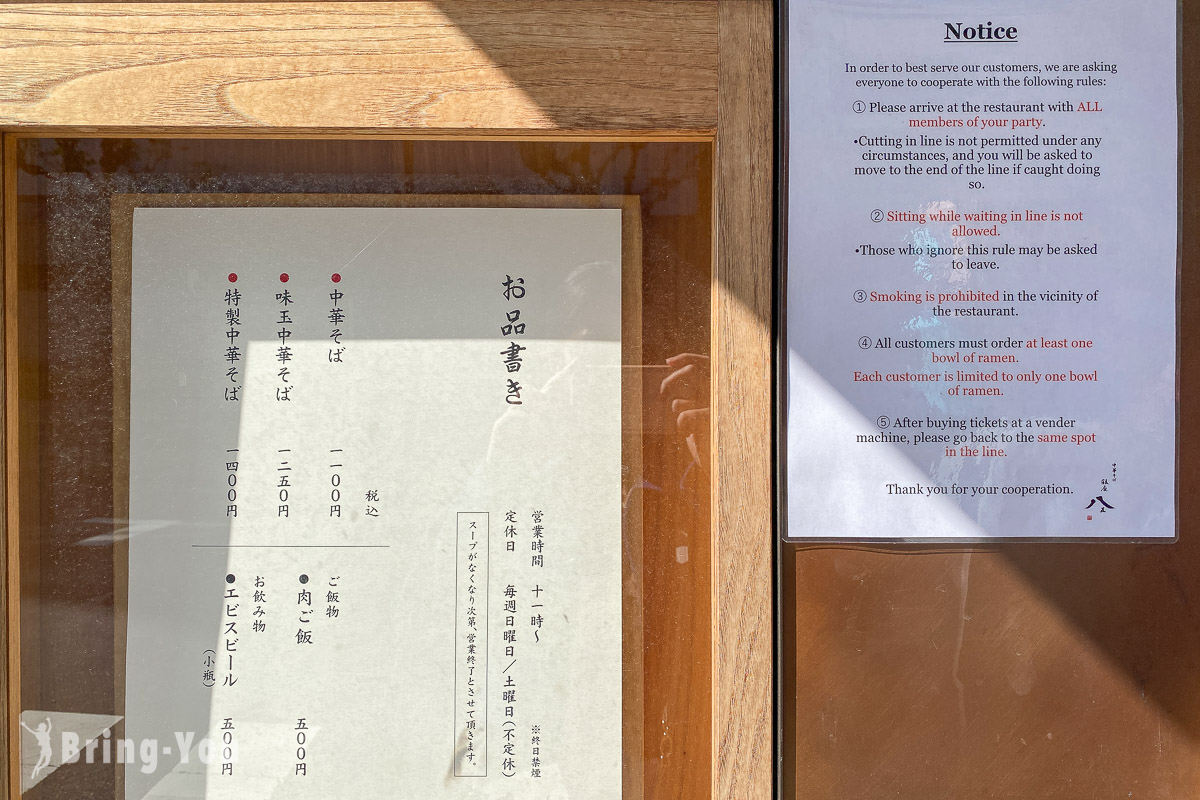 お品書き
営業時間　十一時〜
※終日禁煙
定休日　毎週日曜日／土曜日(不定休)
スープがなくなり次第、営業終了とさせて頂きます。
税込
●中華そば　一一〇〇円
●味玉中華そば　一二五〇円
●特製中華そば　一四〇〇円
ご飯物
●肉ご飯　五〇〇円
お飲み物
●エビスビール　五〇〇円
(小瓶)
Notice
In order to best serve our customers, we are asking
everyone to cooperate with the following rules:
① Please arrive at the restaurant with ALL
members of your party.
•Cutting in line is not permitted under any
circumstances, and you will be asked to
move to the end of the line if caught doing
so.
② Sitting while waiting in line is not
allowed.
•Those who ignore this rule may be asked
to leave.
③ Smoking is prohibited in the vicinity of
the restaurant.
④ All customers must order at least one
bowl of ramen.
Each customer is limited to only one bowl
of ramen.
⑤ After buying tickets at a vender
machine, please go back to the same spot
in the line.
Thank you for your cooperation.
中華そば
銀座
八五
Bring-You